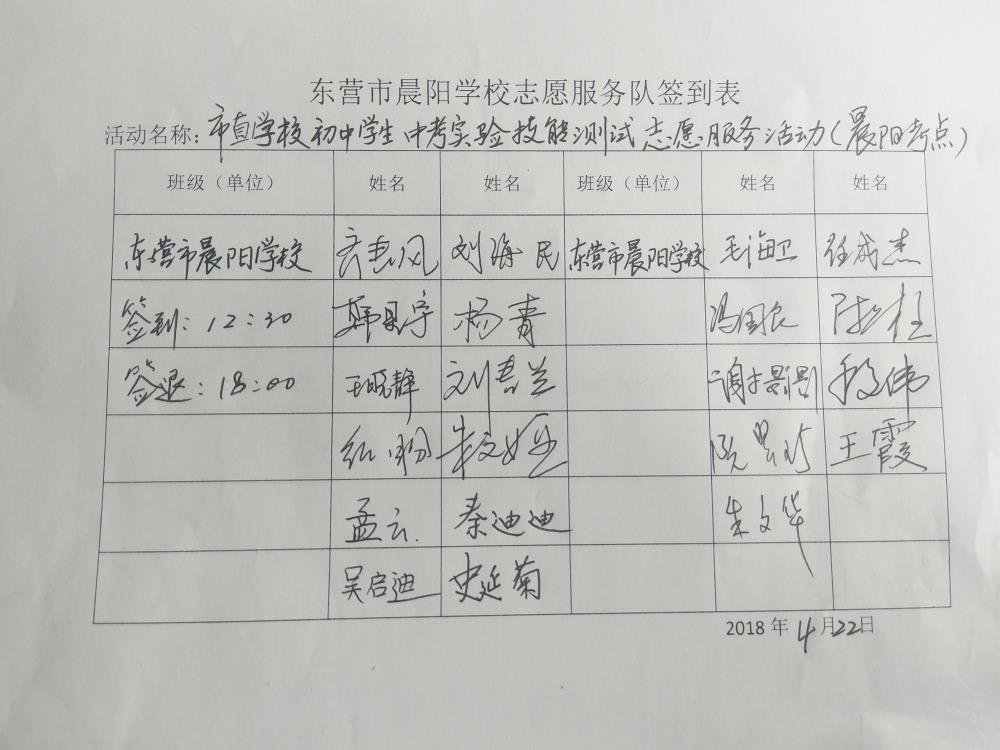 东营市晨阳学校志愿服务队签到表
活动名称：市直学校初中学生中考实验技能测试志愿服务活动（晨阳考点）
班级（单位） 姓名 姓名 班级（单位） 姓名 姓名
东营市晨阳学校 刘海民 东营市晨阳学校 毛海卫 任成杰
签到：12:30 韩昌宇 杨青 冯国良
签退：18:00 王晓静 刘春兰
王霞
孟云 秦迪迪 朱文华
吴启迪 史延菊
2018年4月22日